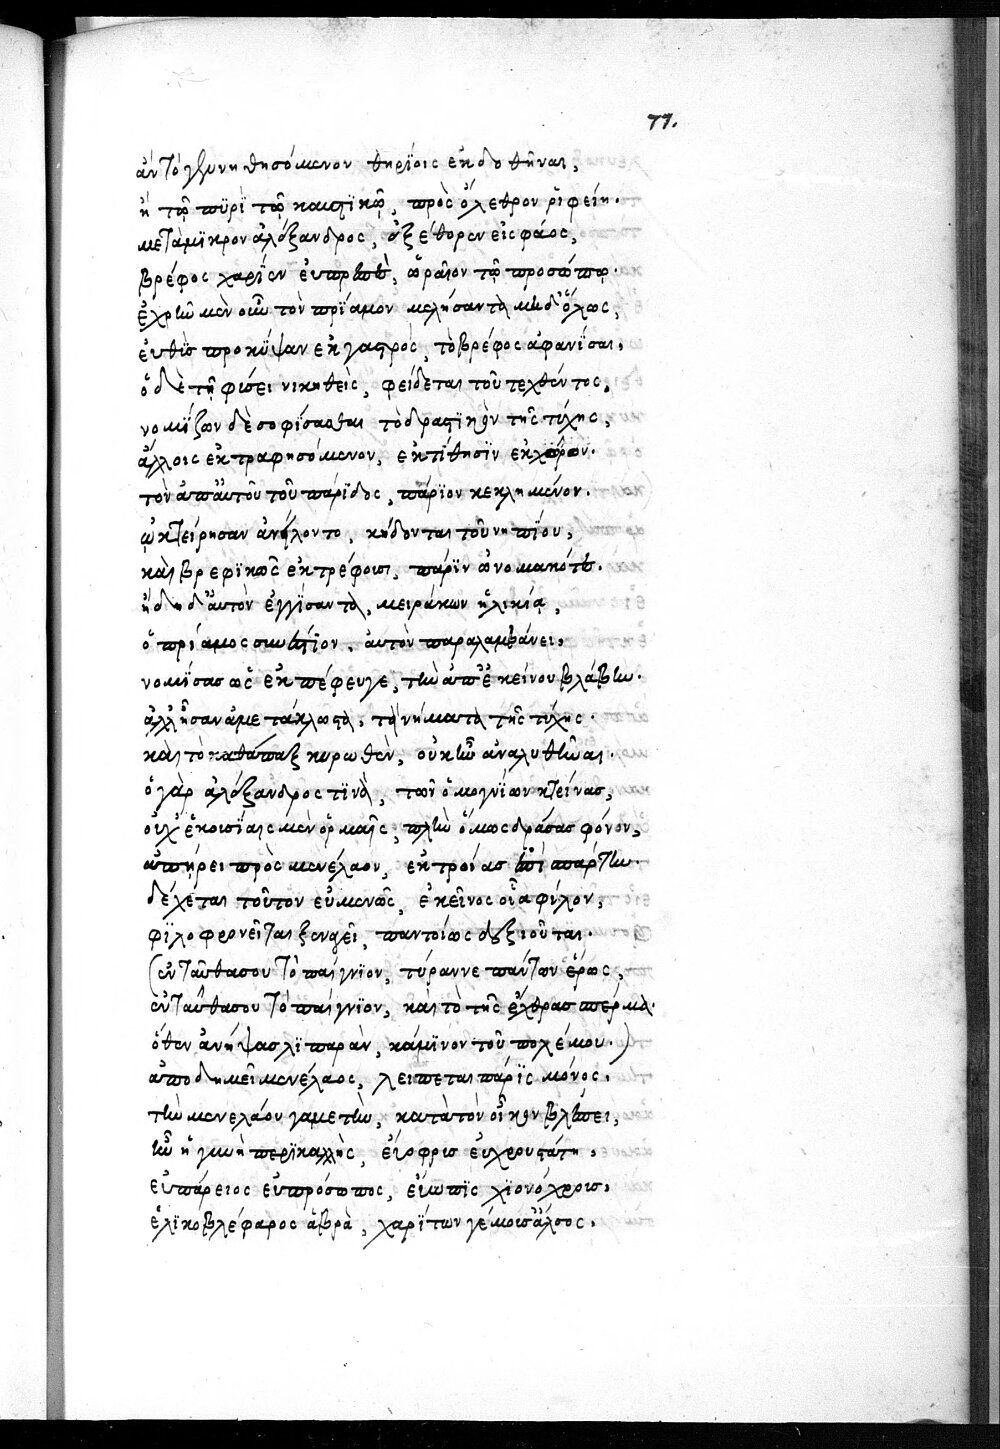 77.
ἀν τὸ γεννηθησόμενον θηρίοις ἐκδοθῆναι,
ἢ τῷ πυρὶ τῷ καυστικῷ, πρὸς ὄλεθρον ῥιφείη.
μετὰ μικρὸν ἀλέξανδρος, ἐξέθορεν εἰς φάος,
βρέφος χαρίεν εὐπρεπὲς, ὡραῖον τῷ προσώπῳ.
ἐχρῆν μὲν οὖν τὸν πρίαμον μελήσαντα μηδόλως,
εὐθὺς προκύψαν ἐκ γαστρὸς, τὸ βρέφος ἀφανίσαι,
ὁ δὲ τῇ φύσει νικηθεὶς, φείδεται τοῦ τεχθέντος,
νομίζων δὲ σοφίσασθαι τὸ δραστικὸν τῆς τύχης,
ἄλλοις ἐκτραφησόμενον, ἐκτίθησιν ἐκ χώρων.
τὸν ἀπ' αὐτοῦ τοῦ πάριδος, πάριον κεκλημένον.
ᾠκτείρησαν ἀνείλοντο, κήδονται τοῦ νηπίου,
καὶ βρεφικῶς ἐκτρέφουσι, πάριν ὠνομακότες.
ἤδη δ' αὐτὸν ἐγγίσαντα, μειράκων ἡλικίᾳ,
ὁ πρίαμος αὐτὸν παραλαμβάνει,
νομίσας ὡς ἐκπέφευγε, τὴν ἀπ' ἐκείνου βλάβην.
ἀλλ' ἦσαν ἀμετάκλωστα, τὰ νήματα τῆς τύχης.
καὶ τὸ καθάπαξ κυρωθὲν, οὐκ ἦν ἀναλυθῆναι.
ὁ γὰρ ἀλέξανδρος τινὰ, τῶν ὁμογνίων κτείνας,
οὐχ' ἑκουσίαις μὲν ὁρμαῖς, πλὴν ὅμως δράσας φόνον,
ἀπῄρει πρὸς μενέλαον, ἐκ τροίας ἐπὶ σπάρτην.
δέχεται τοῦτον εὐμενῶς, ἐκεῖνος οἷα φίλον,
φιλοφρονεῖται ξεναγεῖ, παντοίως δεξιοῦται.
(ἐνταῦθα σου τὸ παίγνιον, τύραννε πάντων ἔρως,
ἐνταῦθα σου τὸ παίγνιον, καὶ τὸ τῆς ἔχθρας σπέρμα.
ὅθεν ἀνῆψας λιπαρὰν, κάμινον τοῦ πολέμου.)
ἀποδημεῖ μενέλαος, λείπεται πάρις μόνος,
τὴν μενελάου γαμετὴν, κατὰ τὸν οἶκον βλέπει,
ἦν ἡ γυνὴ περικαλλὴς, εὔοφρυς εὐχρουστάτη,
εὐπάρειος εὐπρόσωπος, εὐῶπις χιονόχρους,
ἑλικοβλέφαρος ἁβρὰ, χαρίτων γέμουσ' ἄλσος.